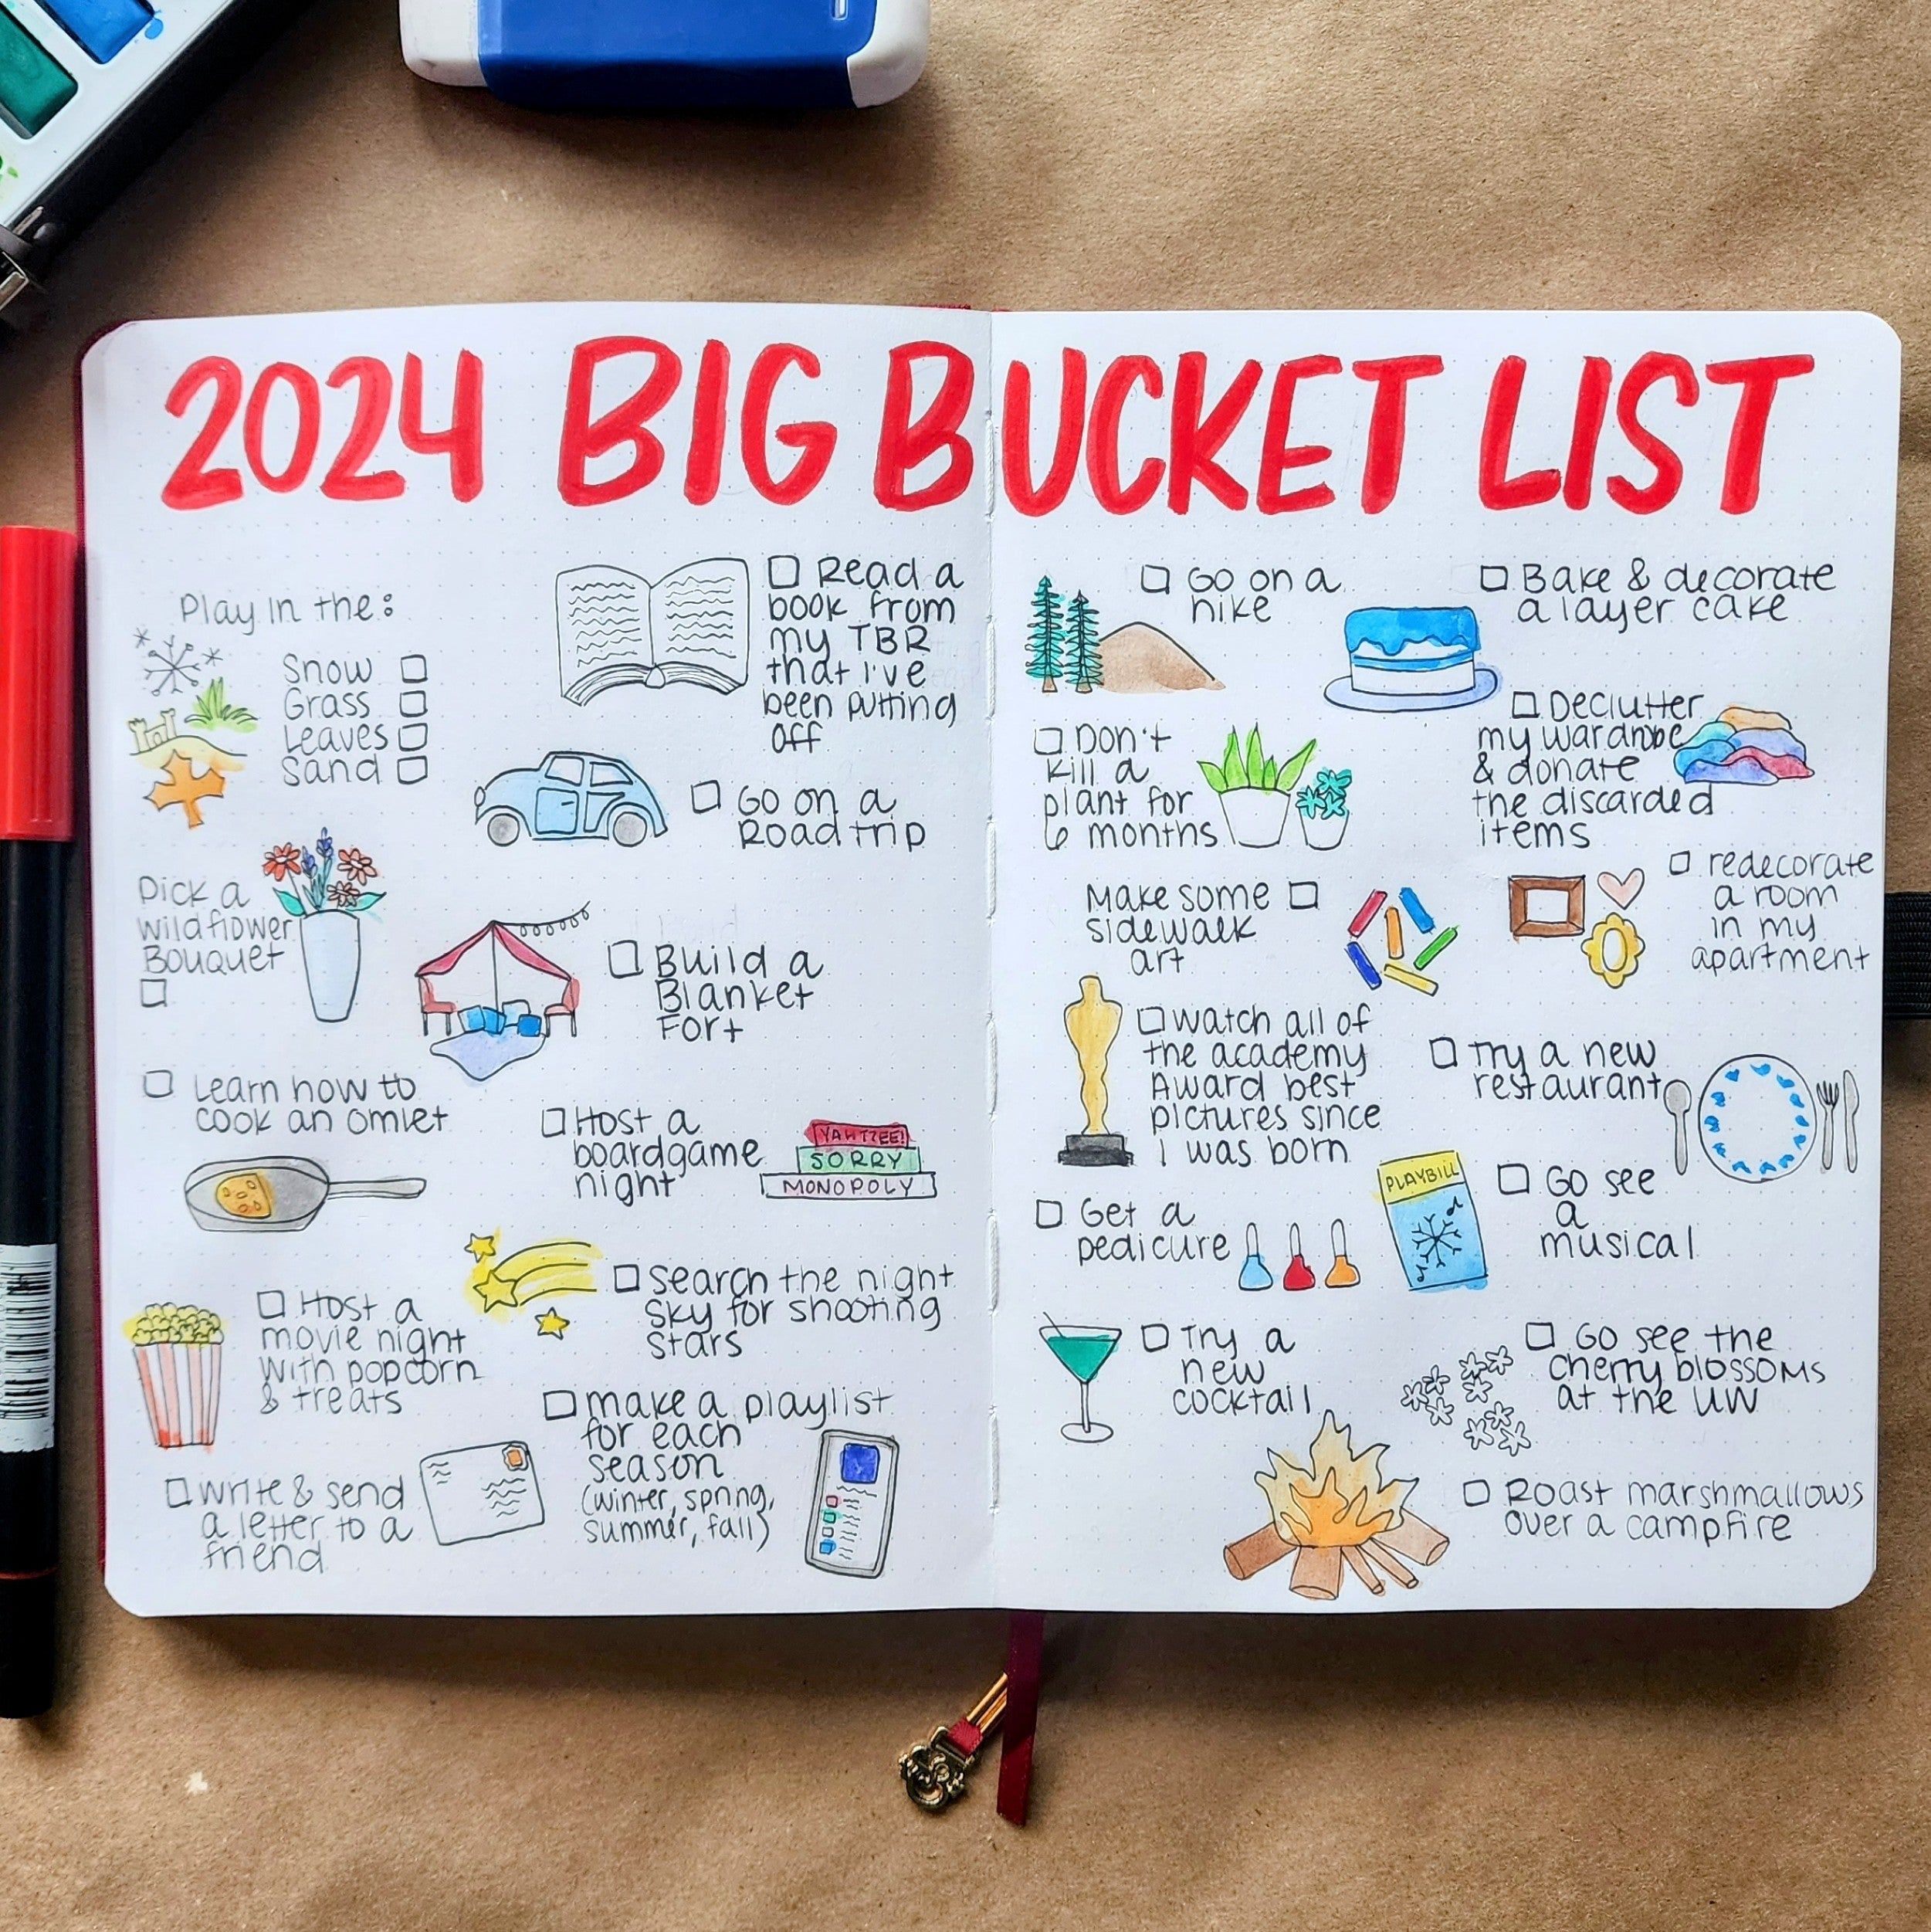 2024 BIG BUCKET LIST
Play in the:
Snow
Grass
Leaves
Sand
Read a
book from
my TBR
that I've
been putting
off
Go on a
Road trip
Pick a
wildflower
Bouquet
Build a
Blanket
Fort
Learn how to
cook an omlet
Host a
boardgame
night
YAHTZEE!
SORRY
MONOPOLY
Search the night
sky for shooting
stars
Host a
movie night
with popcorn
& treats
make a playlist
for each
season
(winter, spring,
summer, fall)
Write & send
a letter to a
friend
Go on a
hike
Bake & decorate
a layer cake
Don't
kill a
plant for
6 months
Declutter
my wardrobe
& donate
the discarded
items
Make some
sidewalk
art
redecorate
a room
in my
apartment
Watch all of
the academy
Award best
pictures since
I was born
Try a new
restaurant
Get a
pedicure
PLAYBILL
Go see
a
musical
Try a
new
cocktail
Go see the
cherry blossoms
at the UW
Roast marshmallows
over a campfire